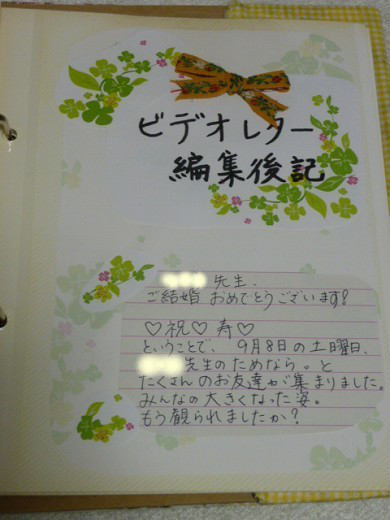 ビデオレター
編集後記
先生、
ご結婚おめでとうございます!
♡祝♡寿♡
ということで、9月8日の土曜日、
先生のためなら。と
たくさんのお友達が集まりました。
みんなの大きくなった姿。
もう観られましたか?